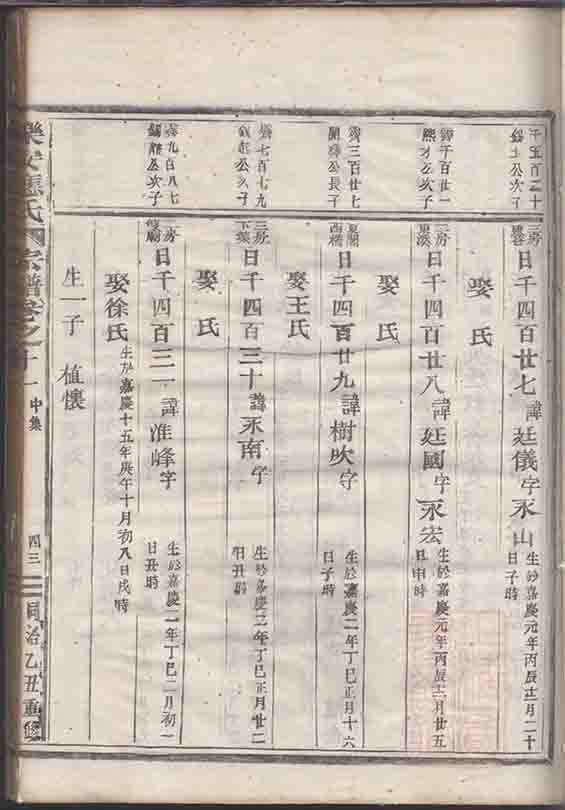 千五百二十
公次子
三房
日千四百廿七諱廷儀字永山
生於嘉慶元年丙辰十二月二十
日子時
娶氏
千百廿一
熙才公次子
二房
日千四百廿八諱廷國字永宏
生於嘉慶元年丙辰十二月廿五
日申時
娶氏
三百廿七
公長子
日千四百廿九諱樹吹字
生於嘉慶二年丁巳正月十六
日子時
娶王氏
七百七九
公次子
三房
下葉
日千四百三十諱永南字
生於嘉慶二年丁巳正月廿二
日丑時
娶氏
九百八七
公次子
二房
日千四百三一諱淮峰字
生於嘉慶二年丁巳二月初一
日丑時
娶徐氏
生於嘉慶十五年庚午十月初八日戌時
生一子植懷
樂安 氏宗譜卷之十一
中集
四三
同治乙丑重修